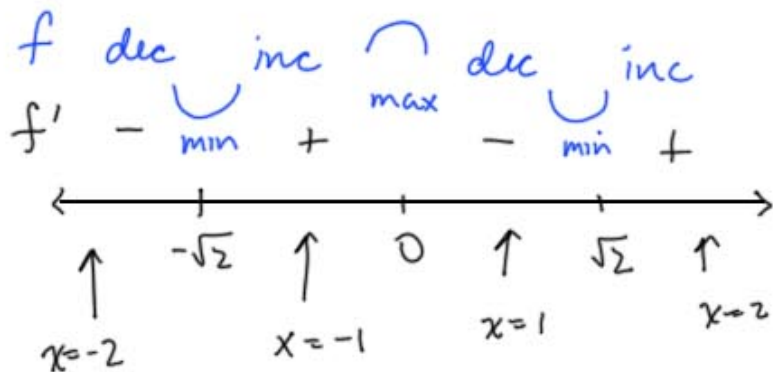 f dec inc dec inc
max
f' - min + - min +
-√2 0 √2
x=-2 x=-1 x=1 x=2